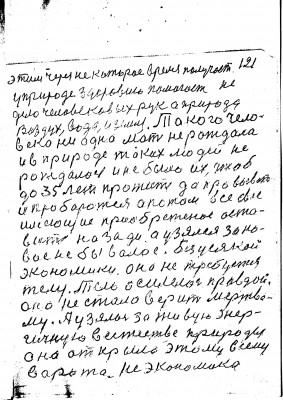 121
этим через некоторое время получает
у природе здоровие помогает не
дело человековых рук а природа
воздух, вода, и земля. Такого чело-
века ни одна мать не рождала
и в природе таких людей не
рождалось и не было их, чтоб
до 35 лет прожить да провывать
и пробаротся а потом все свое
имеющие приобретеное оста-
вить на зади. а узялся за но-
вое не бывалое. Без усякой
экономики. она не требуется
телу. Тело осилелось правдой.
оно не стало верить мертво-
му. А узялось за живую энер-
гичную в естестве природу
она открыла этому всему
варота. Не экономика